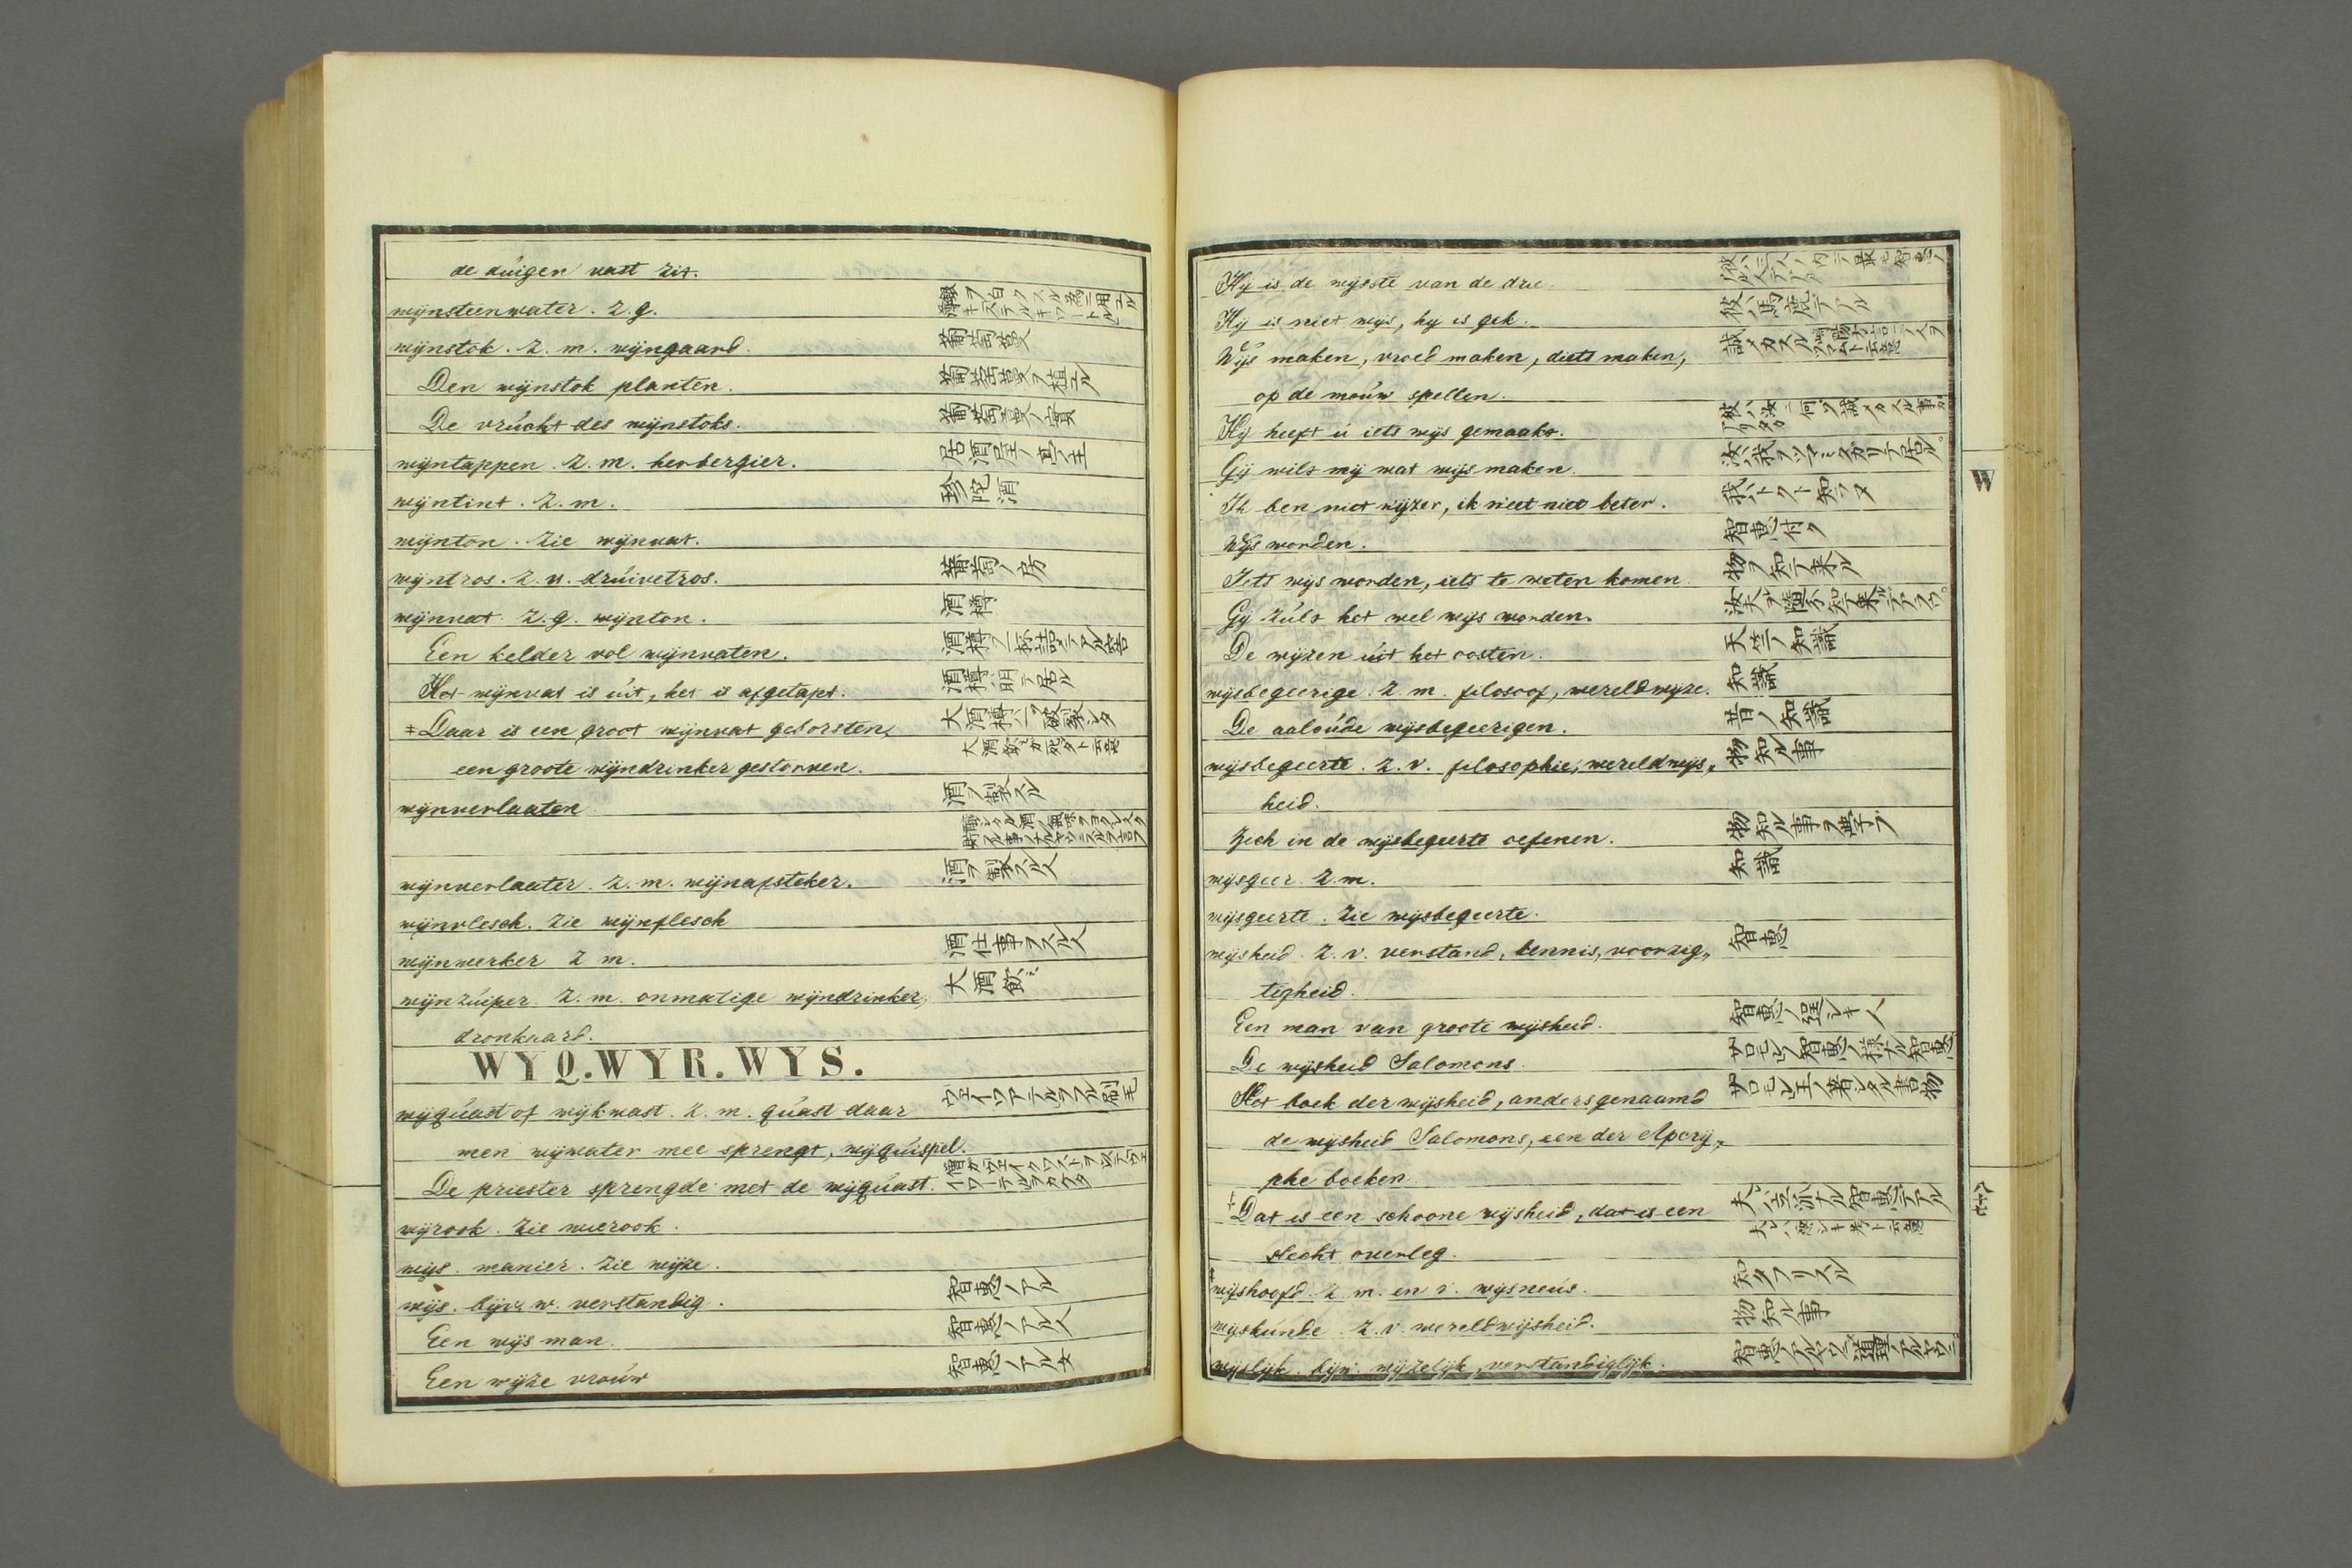 de duigen vast zit.
wijnsteenwater. Z. g.
wijnstok. Z. m. wijngaard. 葡萄蔓
Den wijnstok planten. 葡萄蔓ヲ植ル
De vrúcht des wijnstoks. 葡萄蔓ノ實
wijntappen. Z. m. herbergier. 居酒屋ノ亭主
wijntint. Z. m. 珍陀酒
wijnton. Zie wijnvat.
wijntros. Z. v. drúivetros. 葡萄ノ房
wijnvat Z. g. wijnton. 酒樽
Een kelder vol wijnvaten.
Het wijnvat is úit, het is afgetapt. 酒樽ガ明テ居ル
‡ Daar is een groot wijnvat geborsten, 大酒樽ガ破裂シタ
een groote wijndrinker gestorven. 大酒飲ミガ死タト云意
wijnverlaaten 酒ノ製スル
wijnverlaater. Z. m. wijnafsteker. 酒ヲ製スル人
wijnvlesch. Zie wijnflesch
wijnwerker Z m. 酒仕事ヲスル人
wijnzúiper. Z. m. onmatige wijndrinker, 大酒飲ミ
dronkaard.
WYQ. WYR. WYS.
wijqúast of wijkwast. Z. m. qúast daar
men wijwater mee sprengt, wijqúispel.
De priester sprengde met de wijqúast.
wijrook. Zie wierook.
wijs. manier. Zie wijze.
wijs. bijv. w. verstandig. 智恵ノアル
Een wijs man. 智恵ノアル人
Een wijze vroúw 智恵ノアル女
Hij is de wijste van de drie.
Hij is niet wijs, hij is gek. 彼ハ馬鹿デアル
Wijs maken, vroed maken, diets maken,
op de moúw spellen.
Hij heeft ú iets wijs gemaakt.
Gij wilt mij wat wijs maken.
Ik ben niet wijzer, ik weet niet beter. 我ハトクト知ラヌ
Wijs worden. 智恵付ク
Iets wijs worden, iets te weten komen 物ヲ知テ来ル
Gij zúlt het wel wijs worden.
De wijzen úit het oosten. 天竺ノ知識
wijsbegeerige. Z. m. filosoof, wereldwijze. 知識
De aaloúde wijsbegeerigen. 昔ノ知識
wijsbegeerte. Z. v. filosophie, wereldwijs„ 物知ル事
heid.
Zich in de wijsbegeerte oefenen. 物知ル事ヲ学ブ
wijsgeer. Z. m. 知識
wijsgeerte. Zie wijsbegeerte.
wijsheid. Z. v. verstand, kennis, voorzig„ 智恵
tigheid.
Een man van groote wijsheid.
De wijsheid Salomons.
Het boek der wijsheid, anders genaamd
de wijsheid Salomons, een der Apocrij„
phe boeken.
‡ Dat is een schoone wijsheid, dat is een 夫ハ立派ナル智恵デアル
slecht overleg.
‡ wijshoofd. Z. m. en v. wijsneús. 知タフリスル
wijskúnde. Z. v. wereldwijsheid. 物知ル事
wijslijk. bijw. wijzelijk, verstandiglijk.
W